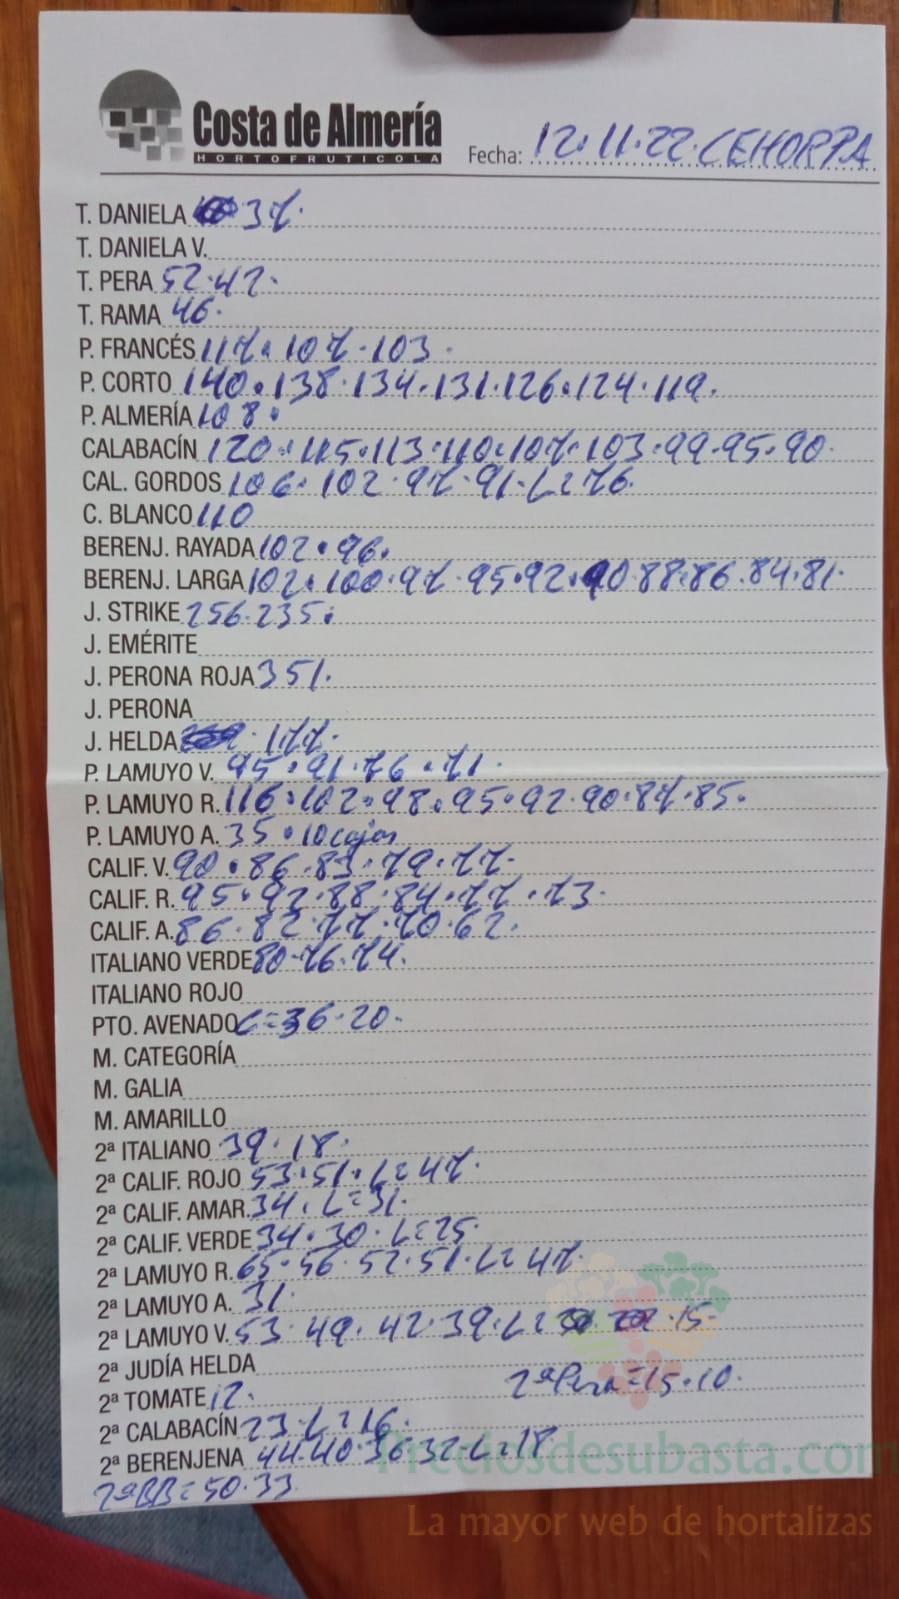 Costa de Almería
HORTOFRUTICOLA
Fecha: 12.11.22.CEHORPA
T. DANIELA 37.
T. DANIELA V.
T. PERA 52.42.
T. RAMA 46.
P. FRANCÉS 117.107.103.
P. CORTO 140.138.134.131.126.124.119.
P. ALMERÍA 108.
CALABACÍN 120.115.113.110.107.103.99.95.90.
CAL. GORDOS 106.102.97.91.L=76.
C. BLANCO 110
BERENJ. RAYADA 102.96.
BERENJ. LARGA 102.100.97.95.92.90.88.86.84.81.
J. STRIKE 256.235.
J. EMÉRITE
J. PERONA ROJA 351.
J. PERONA
J. HELDA .177.
P. LAMUYO V. 95.91.76.71.
P. LAMUYO R. 116.102.98.95.92.90.87.85.
P. LAMUYO A. 35.10 cajas
CALIF. V. 90.86.83.79.77.
CALIF. R. 95.92.88.84.77.73.
CALIF. A. 86.82.77.70.62.
ITALIANO VERDE 80.76.74.
ITALIANO ROJO
PTO. AVENADO L=36.20.
M. CATEGORÍA
M. GALIA
M. AMARILLO
2ª ITALIANO 39.18.
2ª CALIF. ROJO 53.51.L=47.
2ª CALIF. AMAR. 34.L=31.
2ª CALIF. VERDE 34.30.L=25.
2ª LAMUYO R. 65.56.52.51.L=47.
2ª LAMUYO A. 31.
2ª LAMUYO V. 53.49.42.39.L= .15.
2ª JUDÍA HELDA
2ª Pera=15.10.
2ª TOMATE 12.
2ª CALABACÍN 23.L=16.
2ª BERENJENA 44.40.36.32.L=18
2ªBB=50.33.
Preciosdesubasta.com
La mayor web de hortalizas